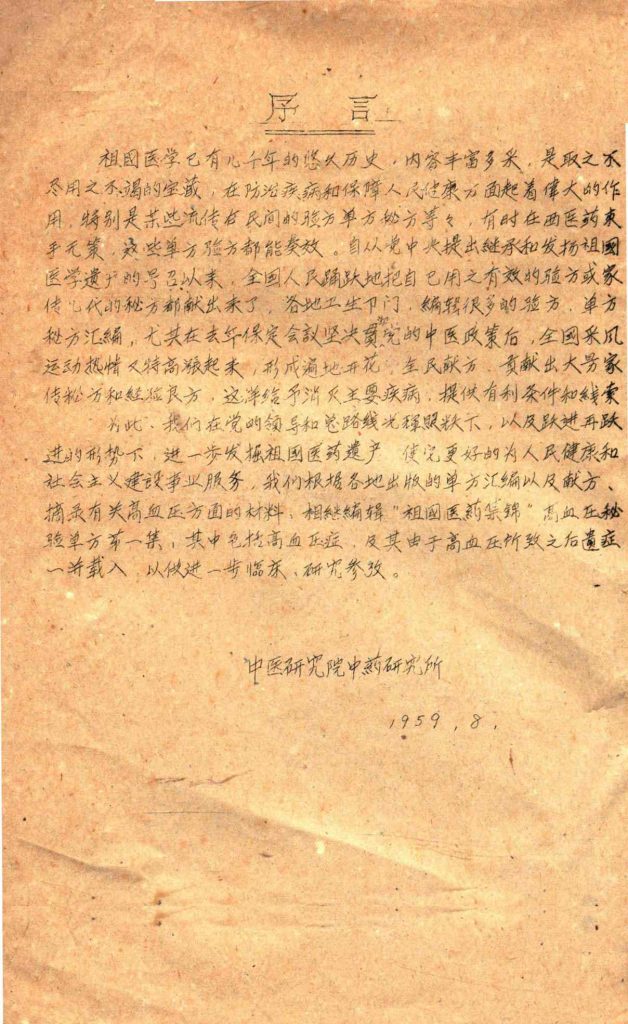 序言
祖國医学已有几千年的悠久历史，内容丰富多采，是取之不
尽用之不竭的宝藏，在防治疾病和保障人民健康方面起着偉大的作
用，特别是某些流传在民间的验方单方秘方等々，有时在西医药束
手无策，这些单方验方都能奏效。自从党中央提出继承和发扬祖國
医学遗产的号召以来，全國人民踊跃地把自己用之有效的验方或家
传几代的秘方都献出来了，各地卫生卩门，编辑很多的验方、单方
秘方汇编，尤其在去年保定会议坚决贯党的中医政策后，全國采风
运动热情又特高涨起来，形成遍地开花，全民献方，贡献出大量家
传秘方和经验良方，这样给予消灭主要疾病，提供有利条件和线索
为此，我们在党的领导和总路线光輝照耀下，以及跃进再跃
进的形势下，进一步发掘祖國医药遗产，使完更好的为人民健康和
社会主义建设事业服务，我们根据各地出版的单方汇编以及献方、
摘录有关高血压方面的材料，相继编辑“祖國医药集锦”高血压秘
验单方第一集，其中包括高血压症，及其由于高血压所致之后遺症
一并载入，以做进一步临床、研究参攷。
中医研究院中药研究所
1959.8.